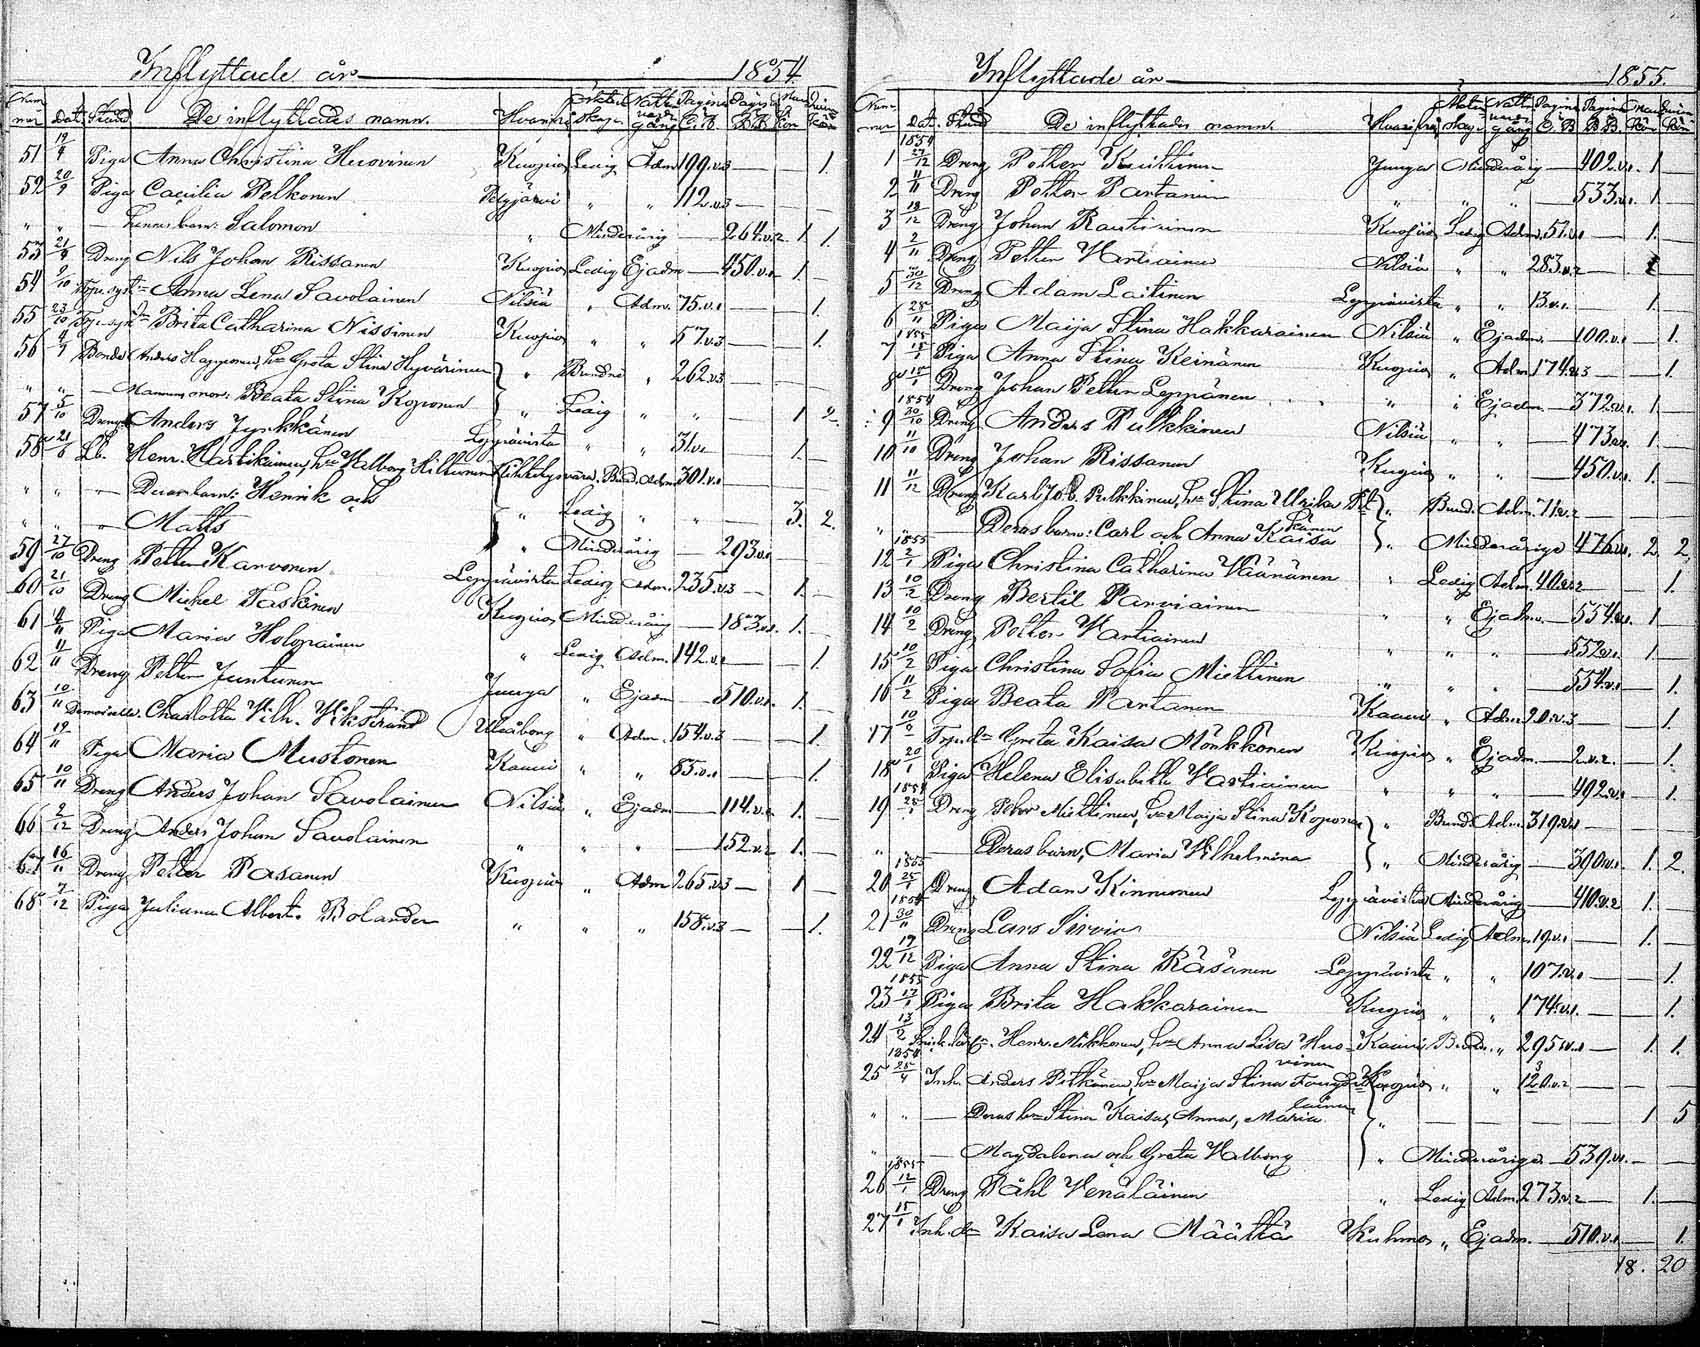 Inflyttade år 1854.
Nummer dat. Stånd De inflyttades namn. Hvarifrån
51 Piga Anna Christina Huovinen Kuopio Ledig Adm. 199.v.3 — — 1.
52 20/9 Piga Cæcilia Pelkonen Polvijärvi " " 112.v.3 — — —
" " — hennes barn: Salomon " Minderårig — 264.v.2. 1 1.
53 21/9 Dreng Nils Johan Rissanen Kuopio Ledig Ej adm — 450.v.1. 1. —
54 9/10 Anna Lena Savolainen Nilsiä " Adm. 75.v.1 — — 1.
55 23/10 Brita Catharina Nissinen Kuopio " " 57.v.3 — — 1.
56 Bonde Anders Happonen, h:u Greta Stina Hyvärinen " Bundne " 262.v.3 — — —
" " — Mannens mor: Beata Stina Koponen " Ledig " " — 1 2.
57 5/10 Dreng Anders Jynkkänen Leppävirta " " 31.v.1 — 1. —
58 Lb. Henr. Hartikainen, h:u Walborg Hiltunen Kihtelysvaara Bund. Adm. 301.v.1 —
" " — Deras barn: Henrik och
" " " Matts " Ledig " " — 3. 2.
" Minderårig — 293.v.1
59 27/10 Dreng Petter Karvonen Leppävirta Ledig Adm. 235.v.3 — 1. —
60 21/10 Dreng Mickel Taskinen Kuopio Minderårig — 183.v.1. 1. —
61 Piga Maria Holopainen " Ledig Adm. 142.v.2 — — 1.
62 Dreng Petter Juntunen Juuga " Ej adm — 510.v.1. 1. —
63 10/11 Demoiselle Charlotta Vilh. Wikstrand Uleåborg " Adm. 154.v.3 — — 1.
64 19/11 Piga Maria Mustonen Kaavi " " 85.v.1 — — 1.
65 10/11 Dreng Anders Johan Savolainen Nilsiä " Ej adm — 114.v.2 1. —
66 2/12 Dreng Anders Johan Savolainen " " " — 152.v.2 1. —
67 16/11 Dreng Petter Pasanen Kuopio " Adm 265.v.3 — 1 —
68 7/12 Piga Juliana Albert. Bolander " " " 158.v.3 — — 1.
Inflyttade år 1855.
Nummer dat. Stånd De inflyttades namn. Hvarifrån
1854
1 27/12 Dreng Petter Juuga Minderårig — 402.v.1. 1 —
2 Dreng Petter Partanen " " " — 533.v.1. 1 —
3 Dreng Johan Rautiainen Kuopio Ledig Adm. 51.v.1 — 1. —
4 2/11 Dreng Petter Wartiainen Nilsiä " " 283.v.2 —
5 30/12 Dreng Adam Laitinen Leppävirta " " 13.v.1. — 1. —
6 28/11 Piga Maija Stina Hakkarainen Nilsiä " Ej adm. — 100.v.1 — 1.
1855
7 Piga Anna Stina Keinänen Kuopio " Adm 174.v.3 — — 1.
8 15/1 Dreng Johan Petter Leppänen " " Ej adm. — 372.v.1. 1 —
1854
9 30/10 Dreng Anders Pulkkinen Nilsiä " " — 473.v.1. 1. —
10 11/10 Dreng Johan Rissanen Kuopio " " — 450.v.1. 1. —
11 11/12 Dreng Karl Joh. Pulkkinen, h:u Stina Ulrika " Bund. Adm. 71.v.2 — — —
" — Deras barn: Carl och Anna Kaisa " Minderårige 476.v.1. 2. 2.
1855
12 2/1 Piga Christina Catharina Väänänen " Ledig Adm. 40.v.2 — — 1.
13 10/2 Dreng Bertil Parviainen " " Ej adm. — 554.v.1. 1 —
14 10/2 Dreng Petter Wartiainen " " " — 552.v.1. 1. —
15 10/2 Piga Christina Sofia Miettinen " " " — 554.v.1 — 1.
16 11/2 Piga Beata Partanen Kaavi " Adm 20.v.3 — — 1.
17 10/2 Greta Kaisa Mönkkönen Kuopio " Ej adm. — 2.v.2. — 1.
18 20/1 Piga Helena Elisabeth Wartiainen " " " — 492.v.1 — 1.
1854
19 Dreng Petter Miettinen, h:u Maija Stina Koponen " Bund. Adm. 319.v.1
" — Deras barn, Maria Wilhelmina " Minderårig — 390.v.1. 1 2.
1855
20 25/1 Dreng Adam Kinnunen Leppävirta Minderårig — 410.v.2 1. —
1854
21 30/11 Dreng Lars Sirvio Nilsiä Ledig Adm. 19.v.1 — 1. —
22 19/12 Piga Anna Stina Räsänen Leppävirta " " 107.v.1 — — 1.
1855
23 17/1 Piga Brita Hakkarainen Kuopio " " 174.v.1. — — 1.
24 13/2 Henr. Mikkonen, h:u Anna Lisa Huovinen Kaavi Bundn. " 295.v.1 — 1. 1.
1854
25 25/4 Inh. Anders Pitkänen, h:u Maija Stina Kuopio " " 120.v.2 — — —
" " — Deras b:n Stina Kaisa, Anna, Maria " — — — 1 5
" — Magdalena och Greta Walborg " Minderårige — 539.v.1. — —
1855
26 12/1 Dreng Påhl Venäläinen " Ledig Adm. 273.v.2 — 1. —
27 15/1 Inh. d:r Kaisa Lena Määttä Kuhmo " Ej adm. — 510.v.1. — 1.
18. 20